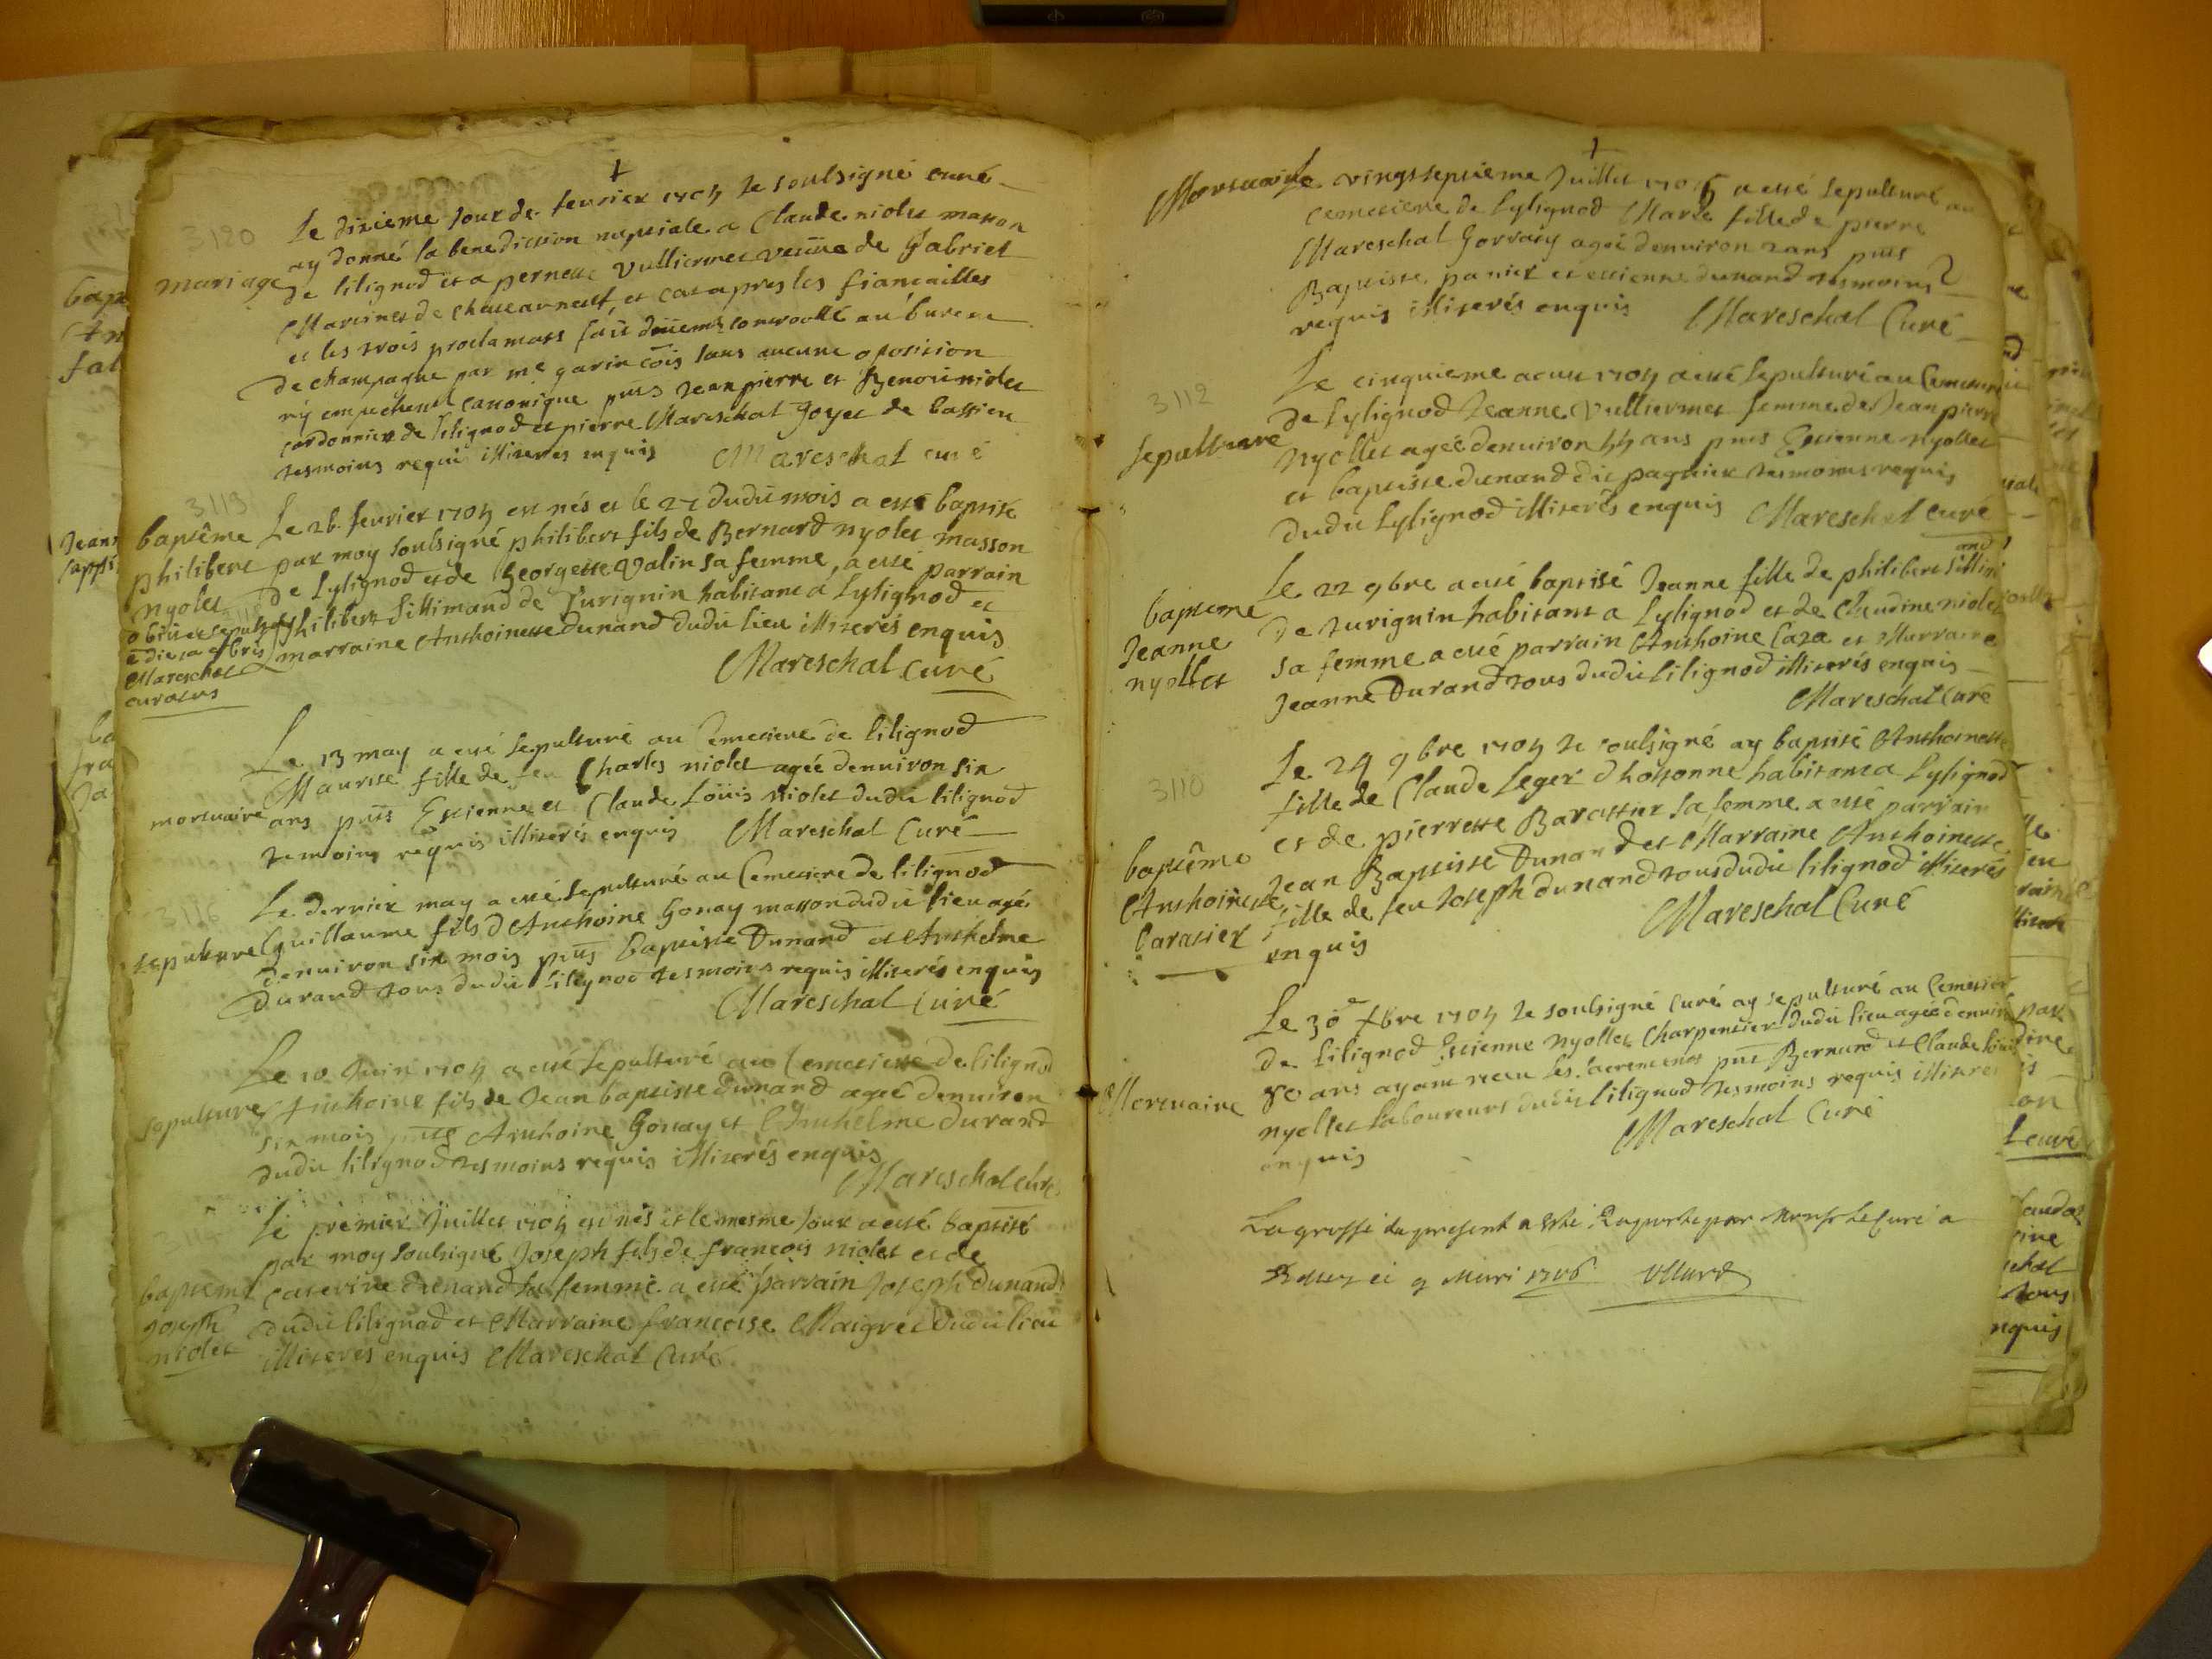 3120
mariage
Le dixieme jour de feurier 1705 Je soubsigné curé
ay donné la benediction nuptiale a Claude niolet masson
de lilignod et a pernette Vulliermet veuue de Gabriel
Martinet de chateauneuf, et ca apres les fiancailles
et les trois proclamats fait controollé au bureau
de champagne par me garin sans aucune oposition
ny canonique Jean pierre et Benoit niolet
cordonnier de lilignod et pierre Mareschal goyet de bassieu
tesmoins requis illiteres enquis Mareschal curé
3119
baptême
philibert
nyolet
Mareschal
curatus
Le 26 feurier 1705 est nés et le 27 dudit mois a esté baptisé
par moy soubsigné philibert fils de Bernard nyolet masson
de Lylignod et de Georgette Valin sa femme, a esté parrain
philibert Sillimand de Turignin habitant a Lylignod et
marraine Anthoinette Dunand dudit lieu illiterés enquis
Mareschal curé
mortuaire
Le 13 may a esté sepulturé au Cemetiere de lilignod
Maurise fille de feu Charles niolet agée denuiron six
ans Estienne et Claude Loüis Niolet dudit lilignod
temoins requis illiterés enquis Mareschal Curé
sepulture
Le dernier may a esté sepulturé au Cemetiere de lilignod
Guillaume fils d Anthoine Gonay masson dudit lieu agé
denuiron six mois Baptiste Dunand et Anthelme
durand tous dudit lilignod tesmoins requis illiterés enquis
Mareschal Curé
sepulture
Le 10 Juin 1705 a esté sepulturé au Cemetiere de lilignod
Anthoine fils de Jean baptiste Dunand agé denuiron
six mois Anthoine Gonay et Anthelme durand
dudit lilignod tesmoins requis illiterés enquis
Mareschal curé
baptême
Joseph
niolet
Le premier Juillet 1705 est nés et le mesme jour a esté baptisé
par moy soubsigné Joseph fils de francois niolet et de
caterine dunand sa femme a esté parrain Joseph dunand
dudit lilignod et Marraine francoise Maigret dudit lieu
illiterés enquis Mareschal Curé
Mortuaire
Le vingt septieme Juillet a esté sepulturé au
cemetiere de Lylignod Marie fille de pierre
Mareschal agée denuiron 2 ans
Baptiste panier et estienne dunand tesmoins
requis illiterés enquis Mareschal Curé
3112
sepulture
Le cinquieme aout 1705 a esté sepulturé au Cemetiere
de Lylignod Jeanne Vulliermet femme de Jean pierre
nyollet agée denuiron 55 ans Estienne nyollet
et baptiste dunand dit tesmoins requis
dudit Lylignod illiterés enquis Mareschal curé
bapteme
Jeanne
nyollet
Le 22 9bre a esté baptisé Jeanne fille de philibert
de turignin habitant a Lylignod et de Claudine niolet
sa femme a esté parrain Anthoine Caza et Marraine
Jeanne Durand tous dudit lilignod illiterés enquis
Mareschal Curé
3110
baptême
Anthoinette
Le 24 9bre 1705 Je soubsigné ay baptisé Anthoinette
fille de Claude Leger d hotonne habitant a Lylignod
et de pierrette Barattier sa femme a esté parrain
Jean Baptiste Dunand et Marraine Anthoinette
fille de feu Joseph dunand tous dudit lilignod illiterés
enquis Mareschal Curé
Mortuaire
Le 30e Xbre 1705 Je soubsigné Curé ay sepulturé au Cemetiere
de lilignod Estienne nyollet Charpentier dudit lieu agé denuiron
80 ans ayant receu les sacrements Bernard et Claude louis
nyollet laboureurs dudit lilignod tesmoins requis illiterés
enquis Mareschal Curé
La grosse du present a esté Raportée par Monsr le Curé a
ce 9 Mars 1706